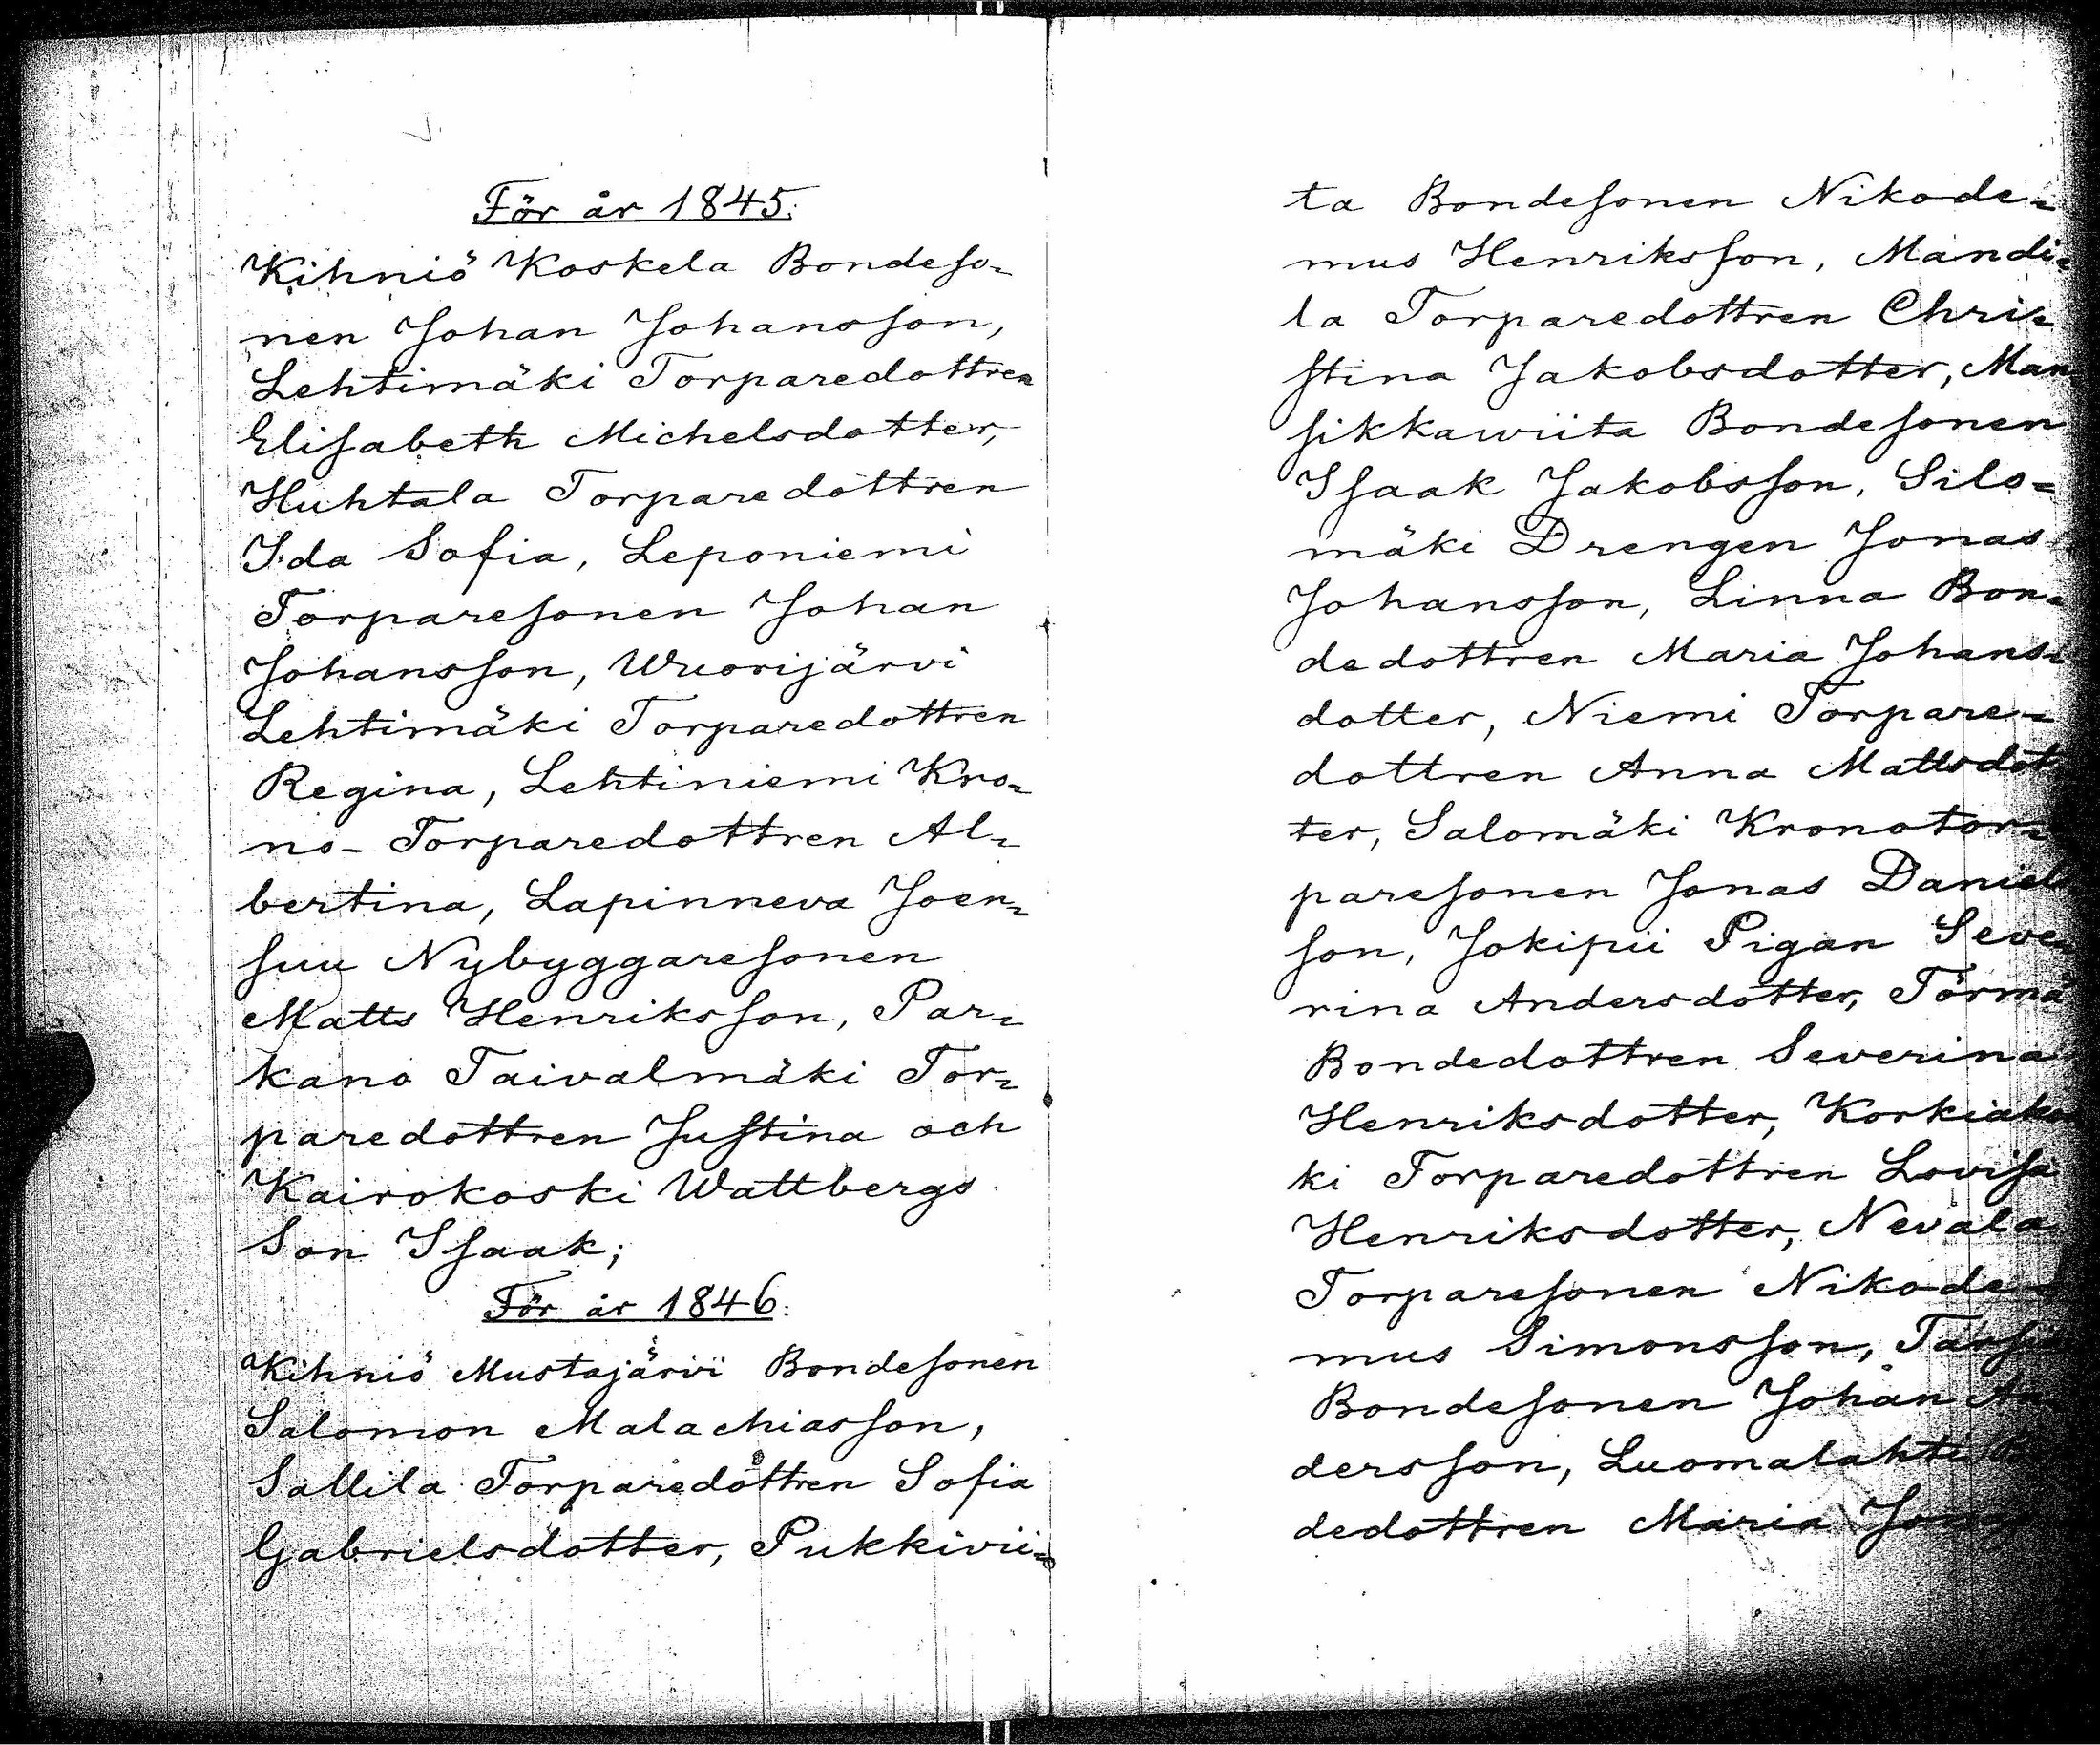 För år 1845.
Kihniö Koskela Bondeso=
nen Johan Johansson,
Lehtimäki Torparedottren
Elisabeth Michelsdotter,
Huhtala Torparedottren
Ida Sofia, Leponiemi
Torparesonen Johan
Johansson, Wuorijärvi
Lehtimäki Torparedottren
Regina, Lehtiniemi Kro=
no- Torparedottren Al=
bertina, Lapinneva Joen=
suu Nybyggaresonen
Matts Henriksson, Par=
kano Taivalmäki Tor=
paredottren Justina och
Kairokoski Wattbergs
Son Isaak;
För år 1846.
Kihniö Mustajärvi Bondesonen
Salomon Malachiasson,
Sallila Torparedottren Sofia
Gabrielsdotter, Pukkivii=
ta Bondesonen Nikode=
mus Henriksson, Mandi=
la Torparedottren Chri=
stina Jakobsdotter, Man
sikkawiita Bondesonen
Isaak Jakobsson, Silo=
mäki Drengen Jonas
Johansson, Linna Bon=
dedottren Maria Johans=
dotter, Niemi Torpare=
dottren Anna Mattsdot
ter, Salomäki Kronotor=
paresonen Jonas Daniel
son, Jokipii Pigan Seve=
rina Andersdotter, Törmä
Bondedottren Severina
Henriksdotter, Korkiako
ki Torparedottren Lovisa
Henriksdotter, Nevala
Torparesonen Nikode=
mus Simonsson,
Bondesonen Johan An
dersson, Luomalahti
dedottren Maria